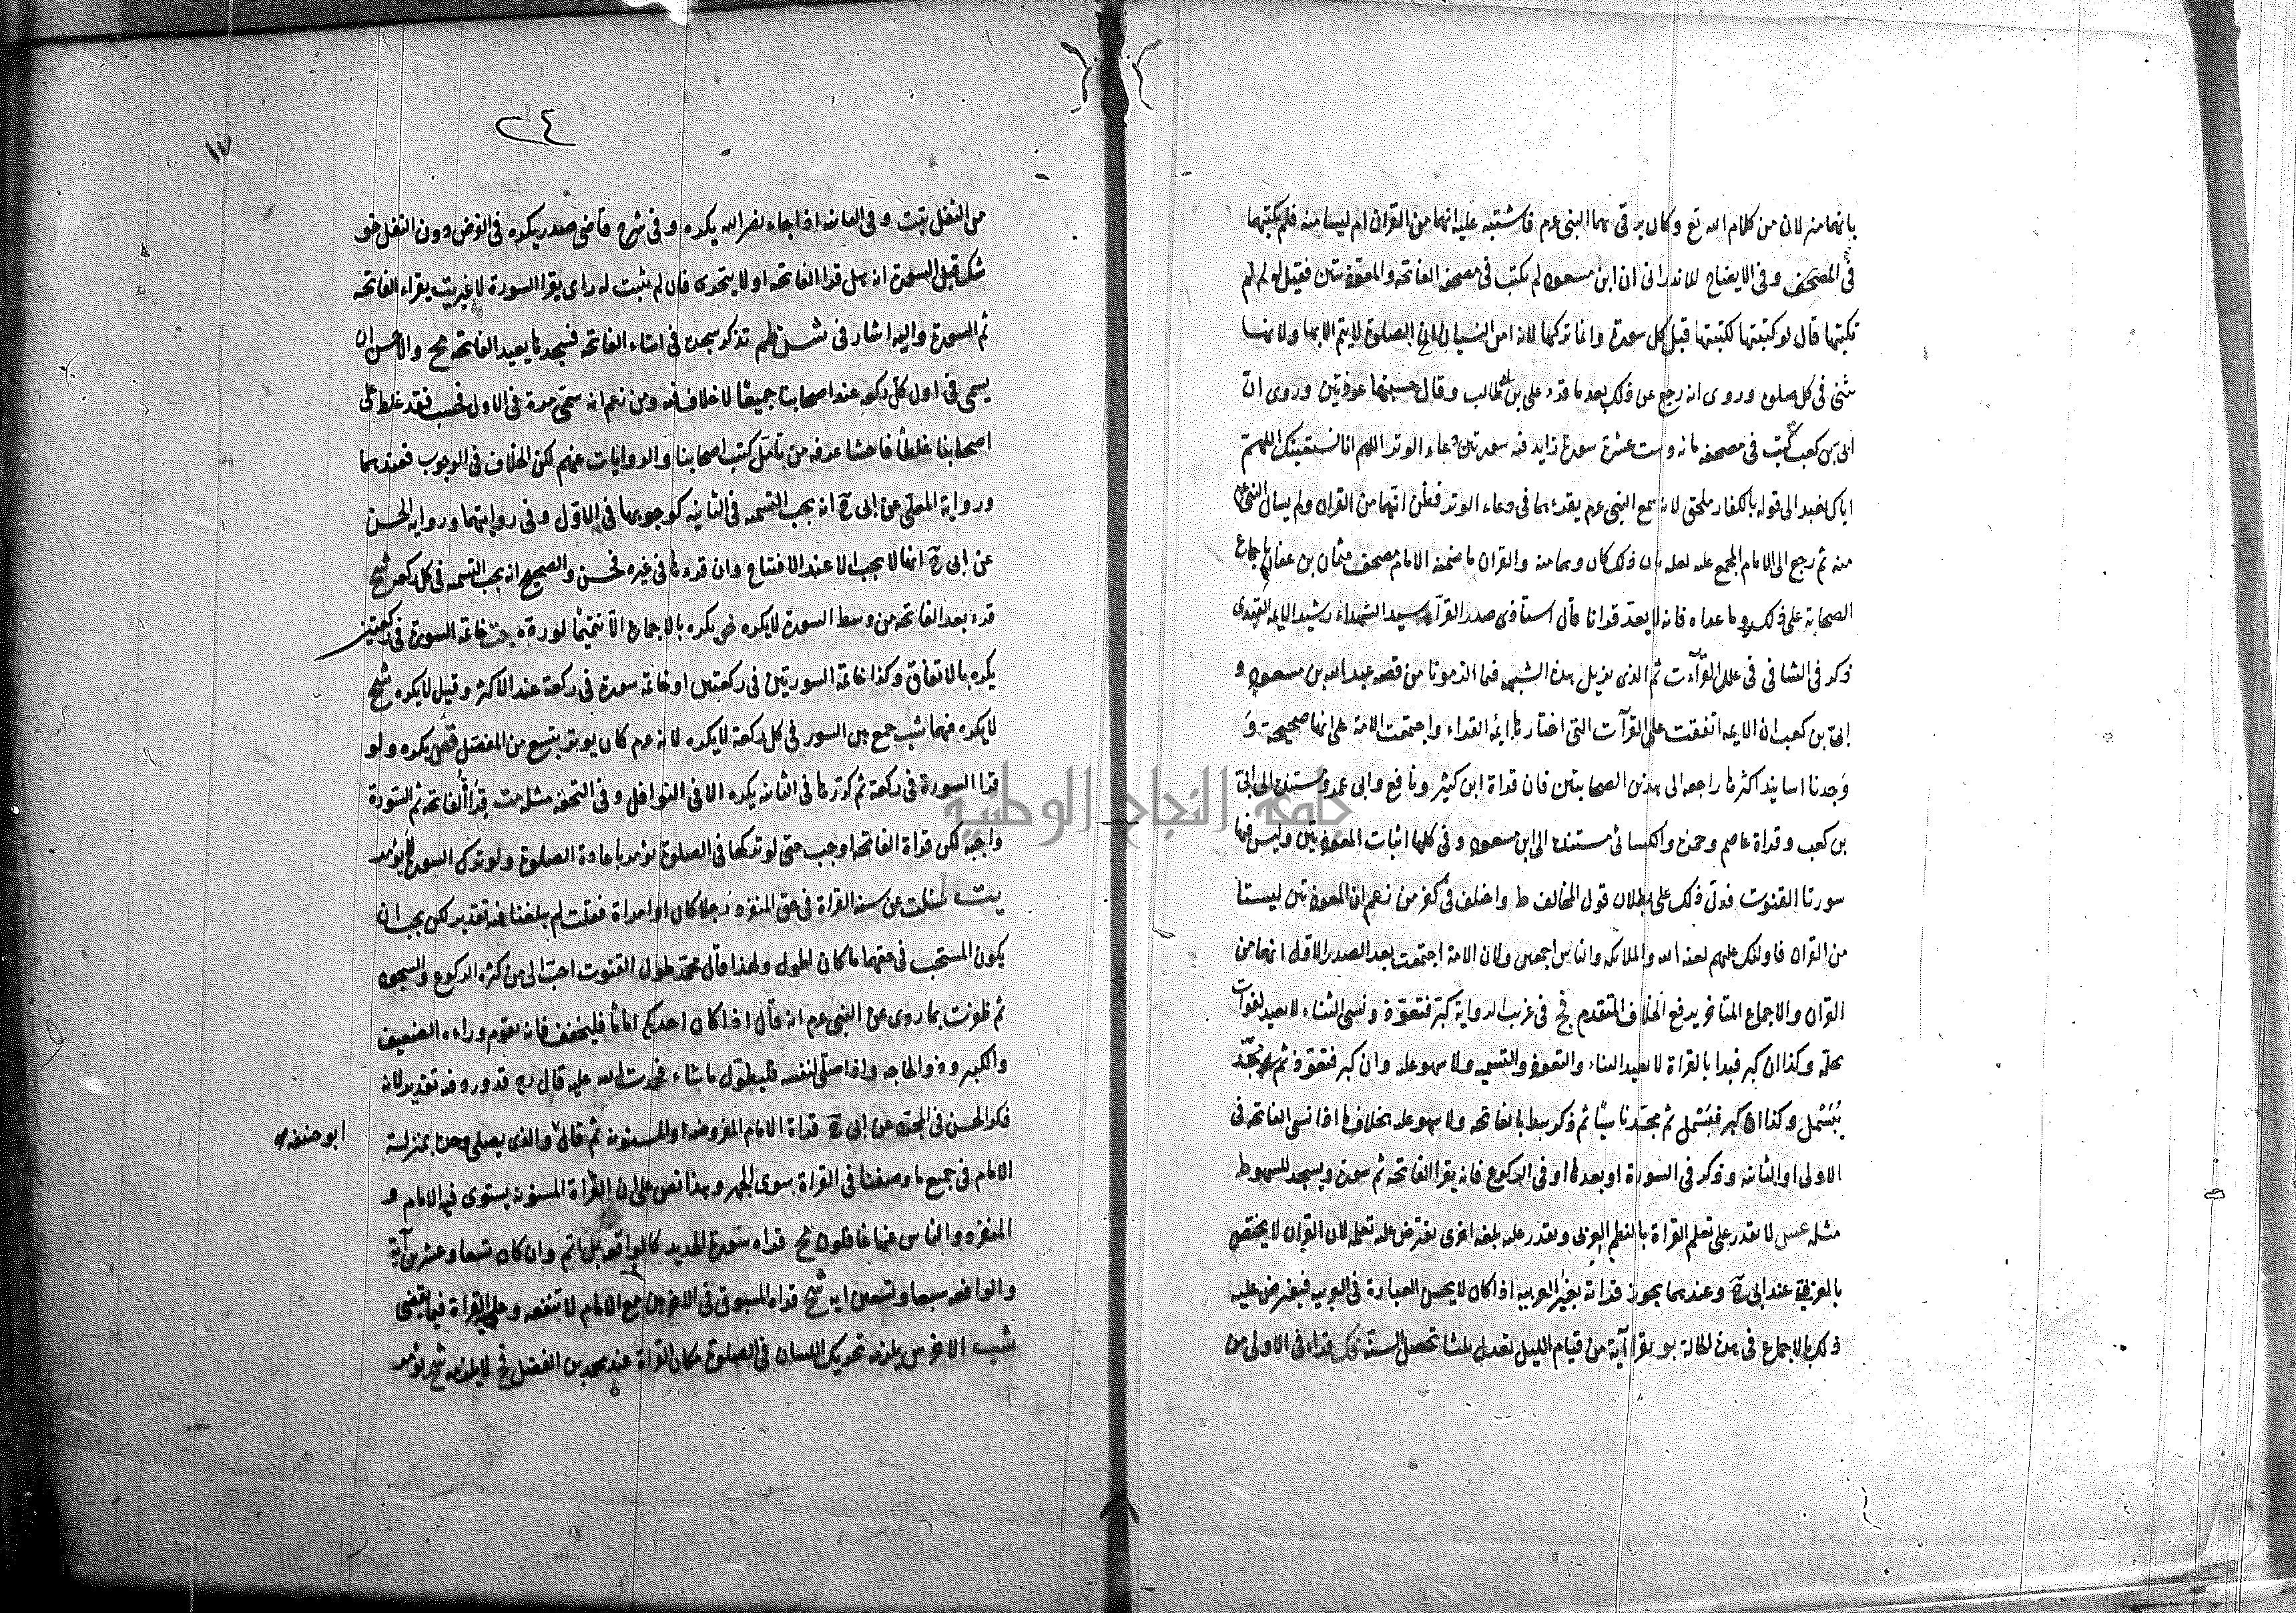 بانهما منزلان من كلام الله تع وكان يرقى بهما النبى عم فاشتبه عليه انهما من القران ام ليسا منه فلم يكتبهما
فى المصحف وفى الايضاح للاندرانى ان ابن مسعود لم يكتب فى مصحفه الفاتحه والمعوذتين فقيل له لم لم
تكتبها قال لو كتبتها لكتبتها قبل كل سورة وانما تركها لانه امن النسيان لان الصلوة لا يتم الا بها ولانها
تثنى فى كل صلوة وروى انه رجع عن ذلك بعد ما قرء على بن طالب وقال حسبتهما عوذتين وروى ان
ابى بن كعب كتب فى مصحفه مائه وست عشرة سورة زايد فيه سورتين دعاء الوتر اللهم انا نستعينك اللهم
اياك نعبد الى قوله بالكفار ملحق لانه سمع النبى عم يقرء بهما فى دعاء الوتر فظن انهما من القران ولم يسال النبى عم
منه ثم رجع الى الامام المجمع عليه لعله بان ذلك كان وهما منه والقران ما ضمنه الامام مصحف عثمان بن عفان باجماع
الصحابة على ذلك وما عداه فانه لا يعد قرانا قال استاذى صدر القرآء سيد الشهداء رشيد الايمه
ذكر فى الشافى فى علل القرآءت ثم الذى يزيل هذه الشبهه فما الزمونا من قصه عبد الله بن مسعود و
ابى بن كعب ان الايمه اتفقت على القرآت التى اختارها ايمة القراء واجتمعت الامة على انها صحيحة و
وجدنا اسانيد اكثرها راجعه الى هذين الصحابيين فان قراة ابن كثير ونافع وابى عمرو مستندة الى ابى
بن كعب وقراة عاصم وحمزة والكسائى مستندة الى ابن مسعود وفى كلها اثبات المعوذتين وليس فيها
سورتا القنوت فدل ذلك على بطلان قول المخالف ط واختلف فى كفر من زعم ان المعوذتين ليستا
من القران فاولئك عليهم لعنة الله والملايكه والناس اجمعين ولان الامة اجتمعت بعد الصدر الاول انهما من
القران والاجماع المتاخر يدفع الخلاف المتقدم فى غريب الرواية كبر فتعوذ ونسى الثناء لا يعيد لفوات
محله وكذا ان كبر فبدا بالقراة لا يعيد الثناء والتعوذ والتسميه ولا سهو عليه وان كبر فتعوذ ثم
يبسمل وكذا ان كبر فبسمل ثم ذكر بدا بالفاتحه ولا سهو عليه بخلاف ما اذا نسى الفاتحه فى
الاولى او الثانيه وذكر فى السورة او بعدها او فى الركوع فانه يقرا الفاتحه ثم سورة ويسجد للسهو ط
مثله عسل لا يقدر على تعلم القراة بالنظم العربى ويقدر عليه بلغه اخرى يفترض عليه تعلمه لان القران لا يختص
بالعربية عند ابى ح وعندهما يجوز قراته بغير العربيه اذا كان لا يحسن العبارة فى العربيه فيفترض عليه
ذلك بالاجماع فى هذه الحالة بو يقرا آية من قيام الليل تعدل بثلث تحصل السنة فك قراء فى الاولى من
٢٤
١٧
من النفل تبت وفى الثانيه اذا جاء نصر الله يكره وفى شرح قاضى صدر يكره فى الفرض دون النفل خو
شك قبل السورة انه هل قرا الفاتحه او لا يتحرى فان لم يثبت له راى يقرا السورة لا غير بت يقراء الفاتحه
ثم السورة واليه اشار فى شس نظم تذكر سجدة فى اثناء الفاتحه فسجدها يعيد الفاتحه مح والاحسن ان
يسمى فى اول كل ركعه عند اصحابنا جميعا لا خلاف فيه ومن زعم انه سمى مرة فى الاول فحسب فقد غلط على
اصحابنا غلطا فاحشا عرفه من تامل كتب اصحابنا والروايات عنهم لكن الخلاف فى الوجوب فعندهما
ورواية المعلى عن ابى ح انه يجب التسميه فى الثانيه كوجوبها فى الاول وفى روايتهما ورواية الحسن
عن ابى ح انها لا يجب الا عند الافتتاح وان قرءها فى غيره فحسن والصحيح انه يجب التسميه فى كل ركعه شح
قرء بعد الفاتحه من وسط السورة لا يكره خى يكره بالاجماع خاتمة السورة فى ركعتين
يكره بالاتفاق وكذا خاتمة السورتين فى ركعتين او خاتمة سورة فى ركعة عند الاكثر وقيل لا يكره شح
لا يكره فيهما شب جمع بين السور فى كل ركعة لا يكره لانه عم كان يوتر بتسع من المفصل قص يكره ولو
قرا السورة فى ركعة ثم كررها فى الثانيه يكره الا فى النوافل وفى التحفه مثله مت قراة الفاتحه ثم السورة
واجبه لكن قراة الفاتحه اوجب حتى لو تركها فى الصلوة يؤمر باعادة الصلوة ولو ترك السورة لا يؤمر
يت سئلت عن سنه القراة فى حق المنفرد رجلا كان او امراة فقلت لم يبلغنا فيه تقدير لكن يجب ان
يكون المستحب فى حقهما ما كان اطول ولهذا قال محمد طول القنوت احب الى من كثرة الركوع والسجود
ثم ظفرت بما روى عن النبى عم انه قال اذا كان احدكم اماما فليخفف فانه يقوم وراءه الضعيف
والكبير وذو الحاجه واذا صلى لنفسه فليطول ما شاء فحمدت الله عليه قال ره قد ورد فيه تقدير لانه
ذكر الحسن فى المجرد عن ابى ح قراة الامام المفروضه والمسنونه ثم قال والذى يصلى وحده بمنزلة
ابو حنيفه
الامام فى جميع ما وصفنا فى القراة سوى الجهر وهذا نص على ان القراة المسنونه يستوى فيه الامام و
المنفرد والناس عنها غافلون مح قراه سورة الحديد كالواقعه بل اتم وان كان تسعا وعشرين آية
والواقعه سبعا وتسعين ايه شح قراه المسبوق فى الاخريين مع الامام لا تنفعه وعليه القراة فيما يقضى
شب الاخرس يلزمه تحريك اللسان فى الصلوة مكان القراة عند محمد بن الفضل فح لا يلزمه شح يؤمر
جامعة النجاح الوطنية